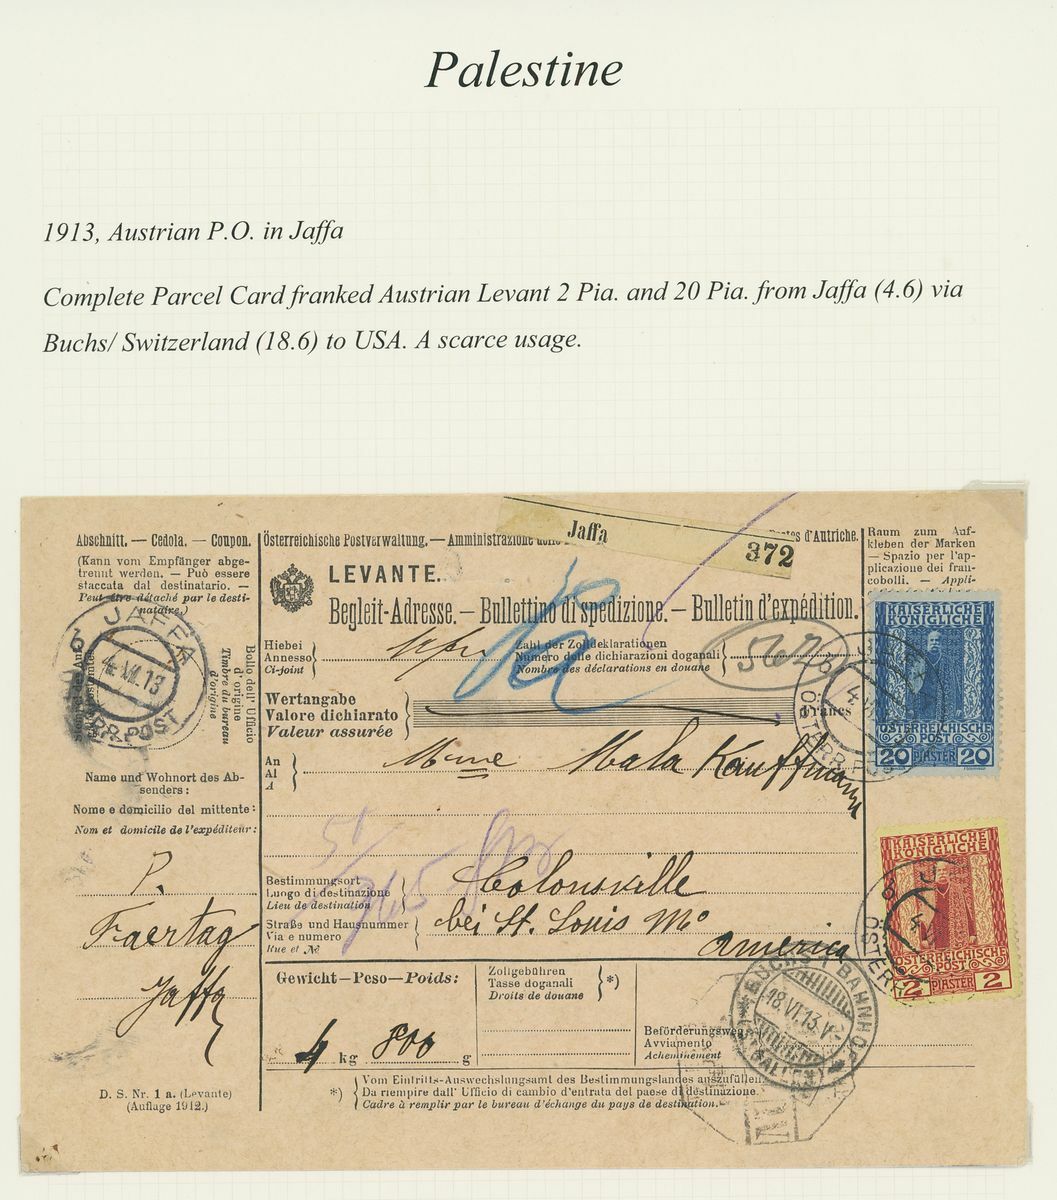 Palestine
1913, Austrian P.O. in Jaffa
Complete Parcel Card franked Austrian Levant 2 Pia. and 20 Pia. from Jaffa (4.6) via
Buchs/ Switzerland (18.6) to USA. A scarce usage.
Abschnitt. — Cedola. — Coupon.
(Kann vom Empfänger abge-
trennt werden. — Può essere
staccata dal destinatario. —
Peut être détaché par le desti-
nataire.)
JAFFA
4. VI. 13
Bollo dell'Ufficio
d'origine
Timbre du bureau
d'origine
Name und Wohnort des Ab-
senders:
Nome e domicilio del mittente:
Nom et domicile de l'expéditeur:
P.
Faertag
Jaffa
D. S. Nr. 1 a. (Levante)
(Auflage 1912.)
Österreichische Postverwaltung. — Amministrazione delle
Jaffa
372
Postes d'Autriche.
LEVANTE.
Begleit-Adresse. — Bullettino di spedizione. — Bulletin d'expédition.
Hiebei
Annesso
Ci-joint
Zahl der Zolldeklarationen
Numero delle dichiarazioni doganali
Nombre des déclarations en douane
Wertangabe
Valore dichiarato
Valeur assurée
Francs
An
Al
A
Mme Mala Kauffmann
Bestimmungsort
Luogo di destinazione
Lieu de destination
Colonsville
Straße und Hausnummer
Via e numero
Rue et №
bei St. Louis Mo
America
Gewicht—Peso—Poids:
4 kg 800 g
Zollgebühren
Tasse doganali
Droits de douane
*)
Beförderungsweg
Avviamento
Acheminement
*)
Vom Eintritts-Auswechslungsamt des Bestimmungslandes auszufüllen.
Da riempire dall' Ufficio di cambio d'entrata del paese di destinazione.
Cadre à remplir par le bureau d'échange du pays de destination.
Raum zum Auf-
kleben der Marken
- Spazio per l'ap-
plicazione dei fran-
cobolli. — Appli-
KAISERLICHE
KÖNIGLICHE
ÖSTERREICHISCHE
POST
20 PIASTER 20
KAISERLICHE
KÖNIGLICHE
ÖSTERREICHISCHE
POST
2 PIASTER 2
BUCHS BAHNHOF
18. VI. 13.